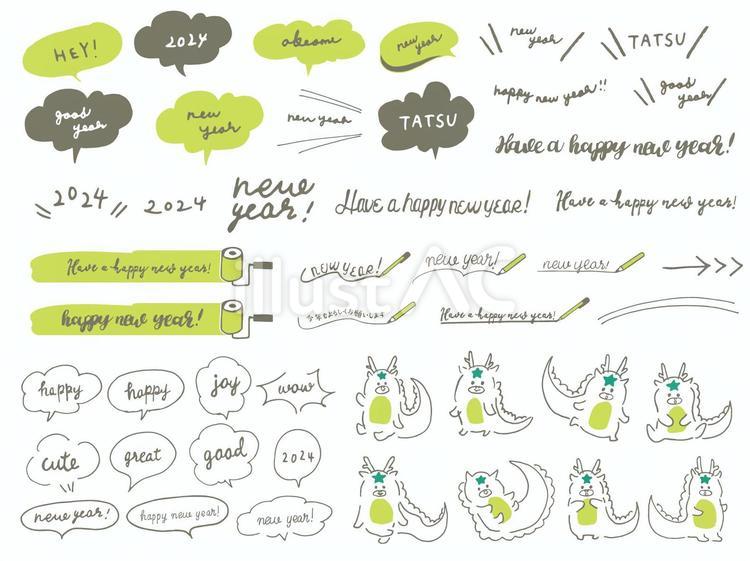 HEY!
2024
akeome
new year
new
year
TATSU
good
year
new
year
new year
TATSU
happy new year!!
good
year
Have a happy new year!
2024
2024
new
year!
Have a happy new year!
Have a happy new year!
Have a happy new year!
new year!
new year!
new year!
happy new year!
今年もよろしくお願いします
Have a happy new year!
illustAC
happy
happy
joy
wow
cute
great
good
2024
new year!
happy new year!
new year!